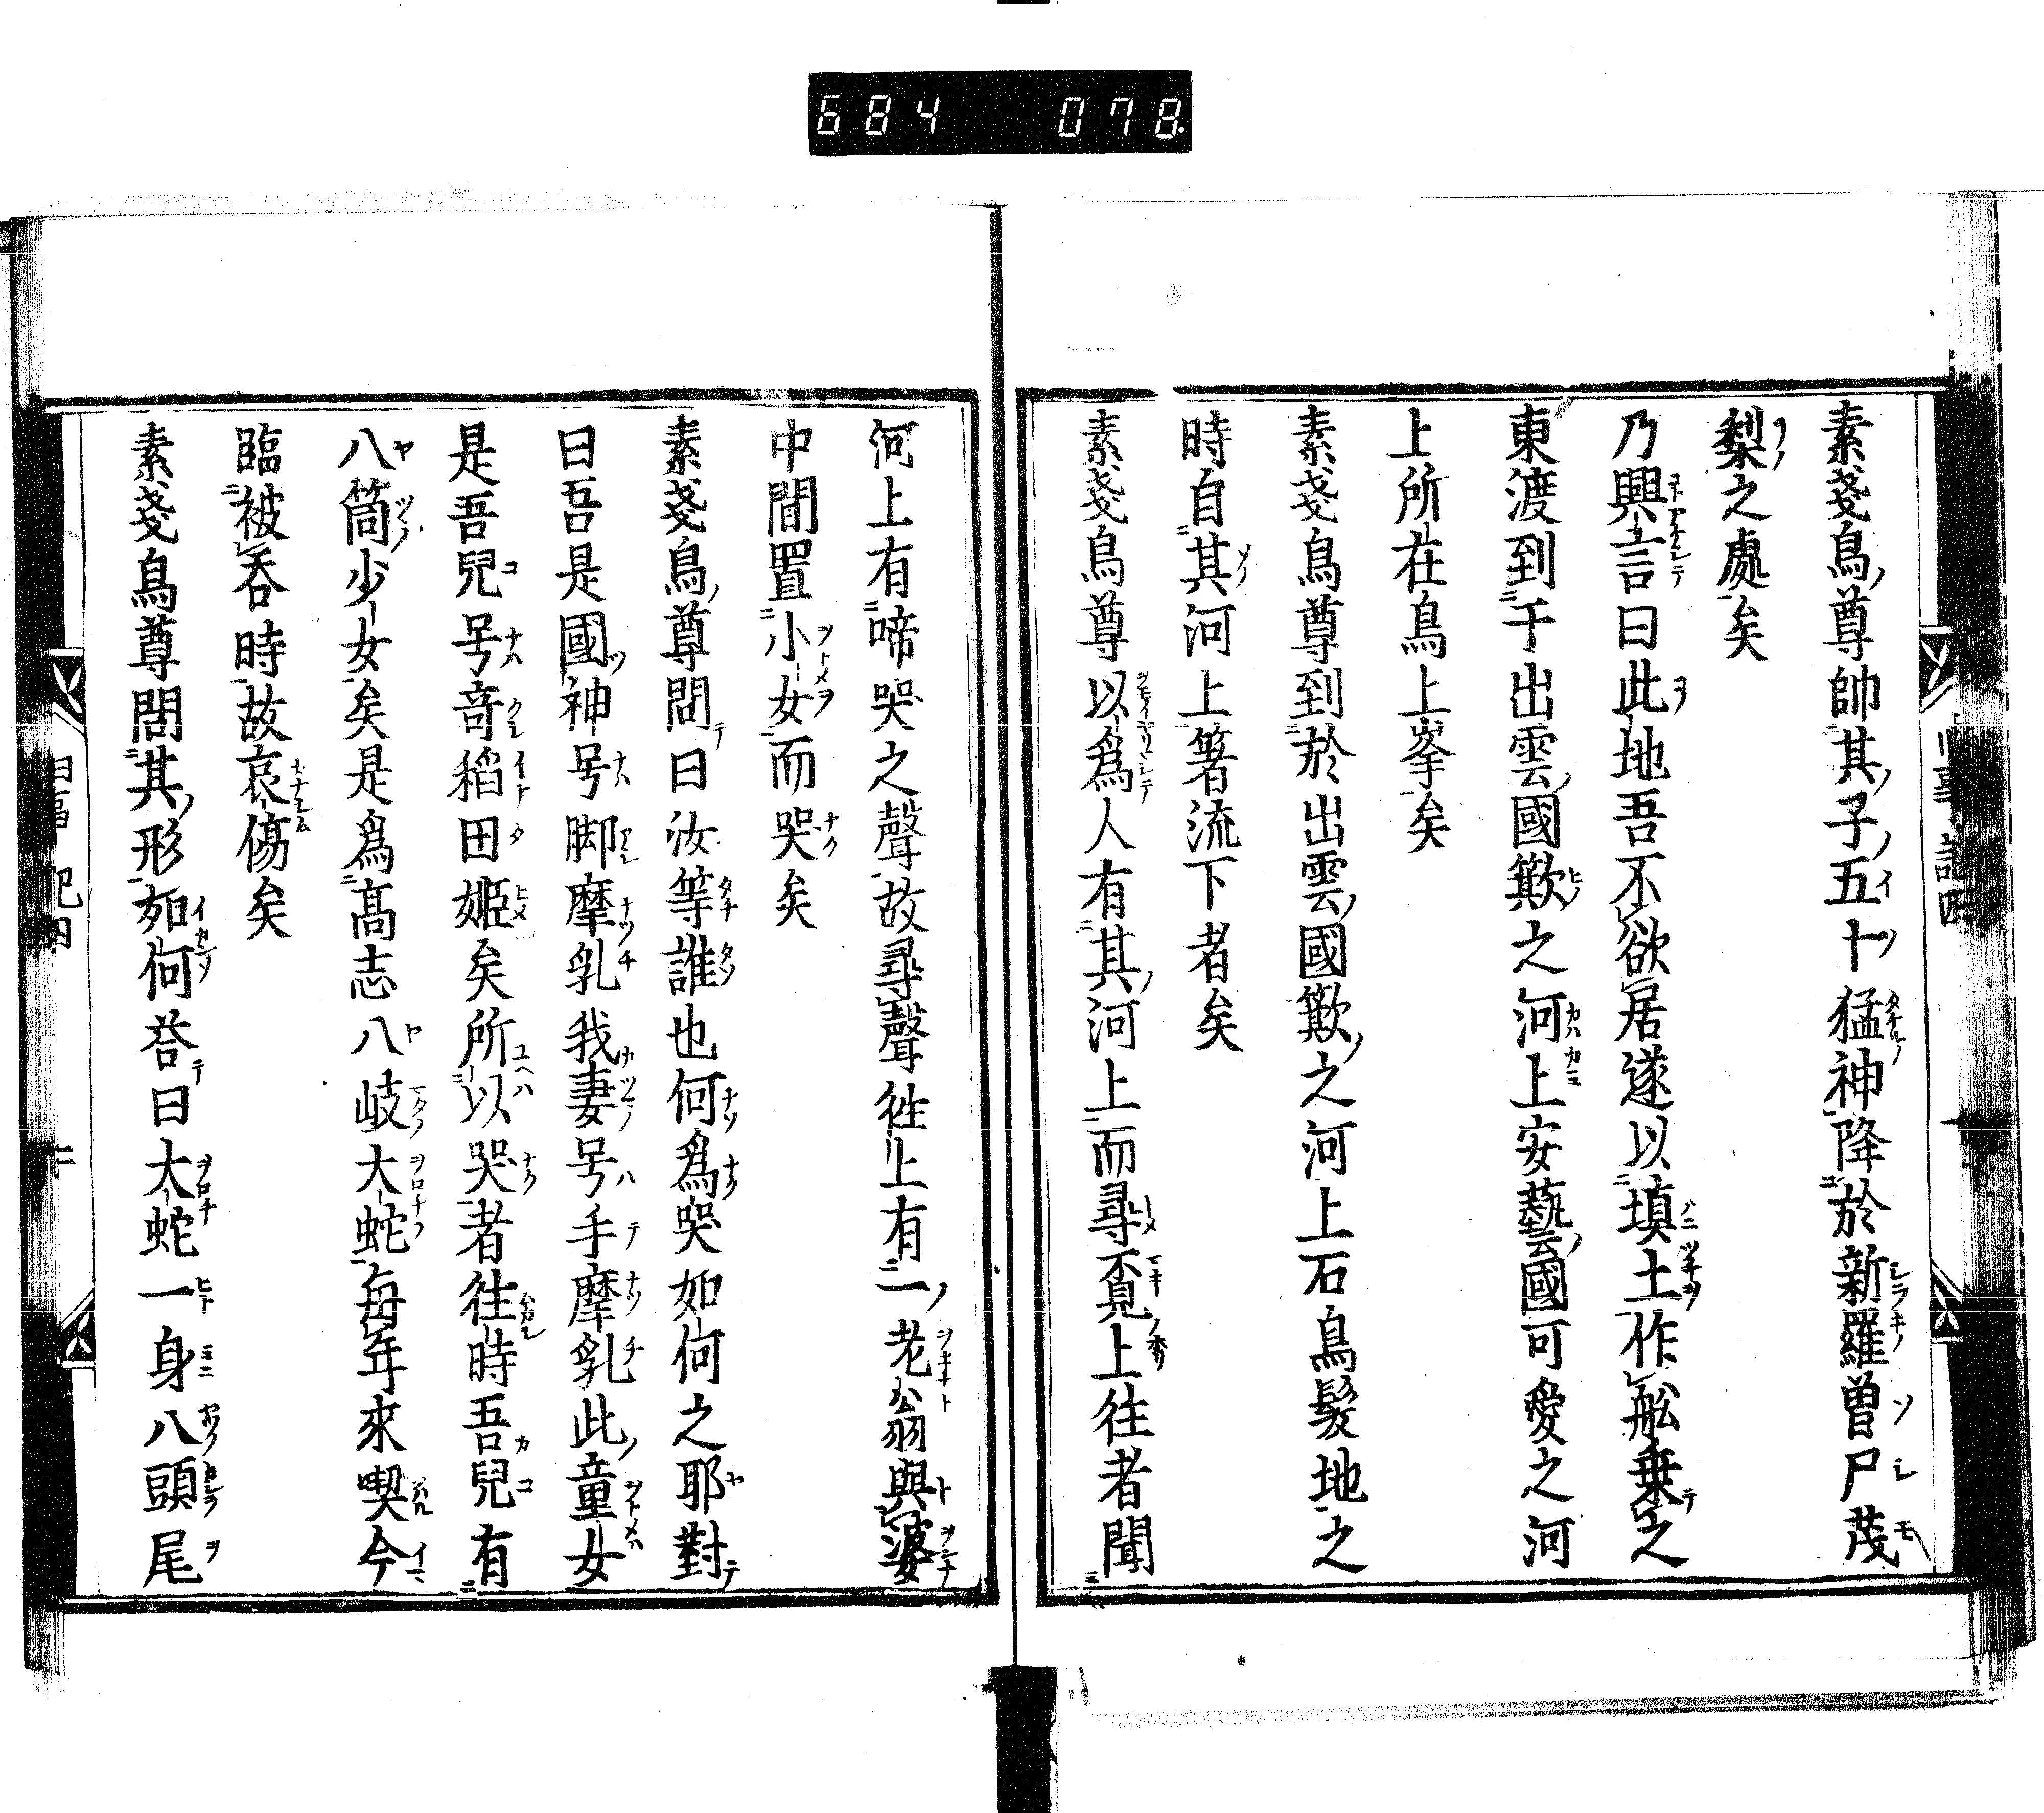 684 078
素戔烏尊帥其子五十猛神降於新羅曽尸茂
梨之處矣
乃興言曰此地吾不欲居遂以埴土作舩乗之
東渡到于出雲國簸之河上安藝國可愛之河
上所在鳥上峯矣
素戔烏尊到於出雲國簸之河上石鳥髮地之
時自其河上箸流下者矣
素戔烏尊以爲人有其河上而尋覔上往者聞
河上有啼哭之聲故尋聲徃上有一老翁與婆
中間置小女而哭矣
素戔烏尊問曰汝等誰也何爲哭如何之耶對
曰吾是國神号脚摩乳我妻号手摩乳此童女
是吾兒号竒稻田姬矣所以哭者徃時吾兒有
八箇少女矣是爲髙志八岐大蛇每年來喫今
臨被呑時故哀傷矣
素戔烏尊問其形如何荅曰大蛇一身八頭尾